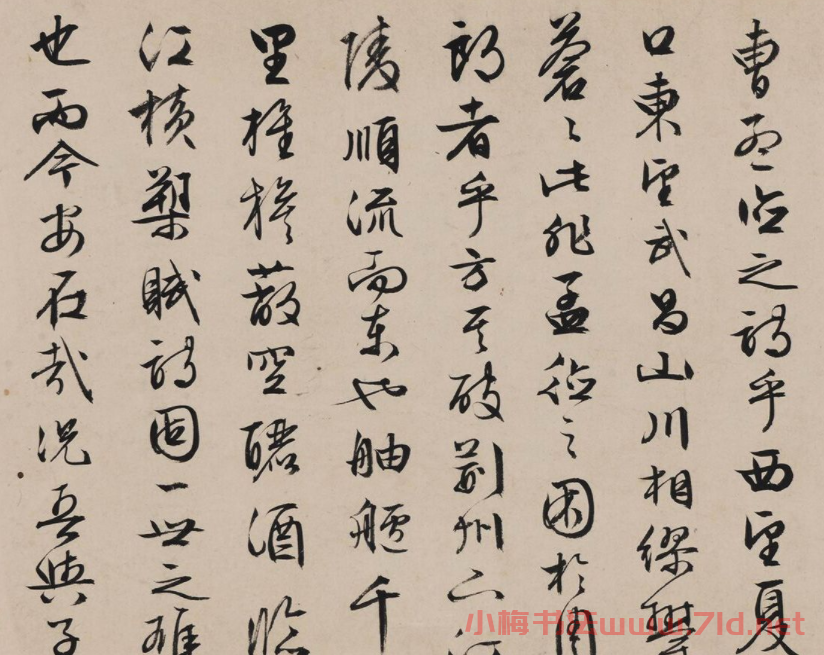 曹孟德之詩乎西望夏
口東望武昌山川相繆鬱
蒼〻此非孟德之困於周
郎者乎方其破荊州下江
陵順流而東也舳艫千
里旌旗蔽空釃酒臨
江橫槊賦詩固一世之雄
也而今安在哉況吾與子
小梅书 www.7ld.net